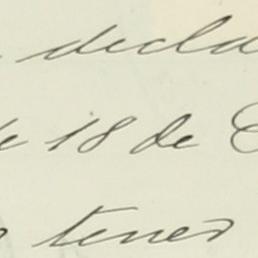 decla
de 18 de E
tener